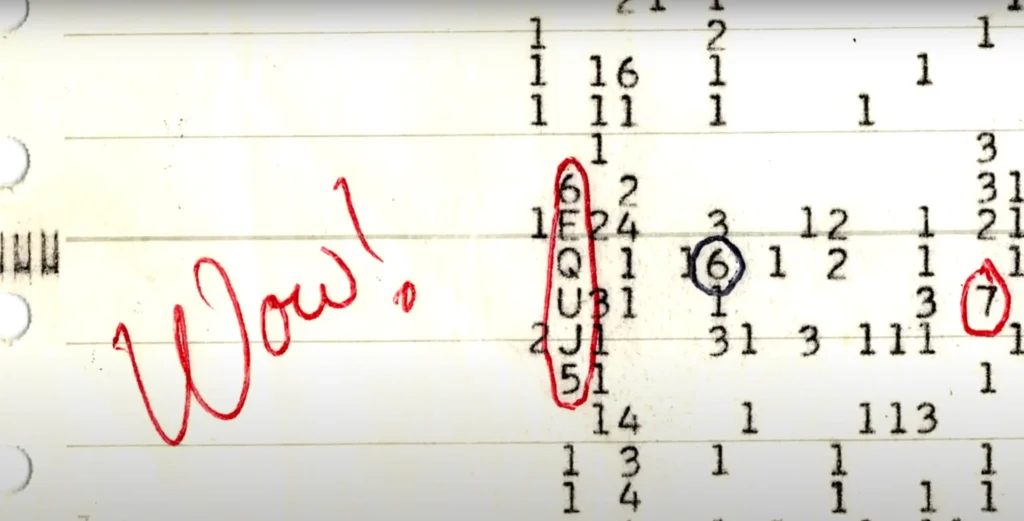 1 2 1
1 16 1 1
1 11 1 1
1 3
6 2 31
1E24 3 12 1 21
Wow! Q 1 16 1 2 1 1
U31 1 3 7
2J1 31 3 111 1
51 1
14 1 113
1 3 1 1 1
1 4 1 1 1